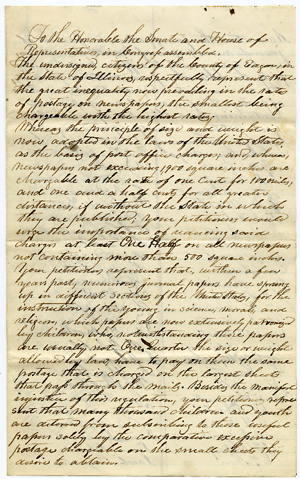 To the Honorable the Senate and House of
Representatives, in Congress assembled.
The undersigned, citizens of the County of
the State of Illinois, respectfully represent that
the great inequality now prevailing in the rate
of postage on newspapers, the smallest being
chargeable with the highest rates;
Whereas the principle of size and weight is
now adopted in the laws of the United States,
as the basis of post office charges; and whereas,
newspapers not exceeding 1900 square inches are
chargeable at the rate of one cent for 100 miles,
and one and a half cents for all greater
distances, if without the State in which
they are published, Your petitioners would
urge the importance of reducing said
charges at least One Half on all newspapers
not containing more than 500 square inches.
Your petitioners represent that, within a few
years past, numerous journal papers have sprung
up in different sections of the United States, for the
instruction of the young in science, morals, and
religion, which papers are now extensively patronized
by children; but, notwithstanding these papers
are usually not One quarter the size or weight
allowed by law, have to pay on them the same
postage that is charged on the largest sheets
that pass through the mails. Besides the manifest
injustice of this regulation, your petitioners repre-
sent that many thousand children and youth
are deterred from subscribing to these useful
papers solely by the comparative excessive
postage chargeable on the small sheets they
desire to obtain.